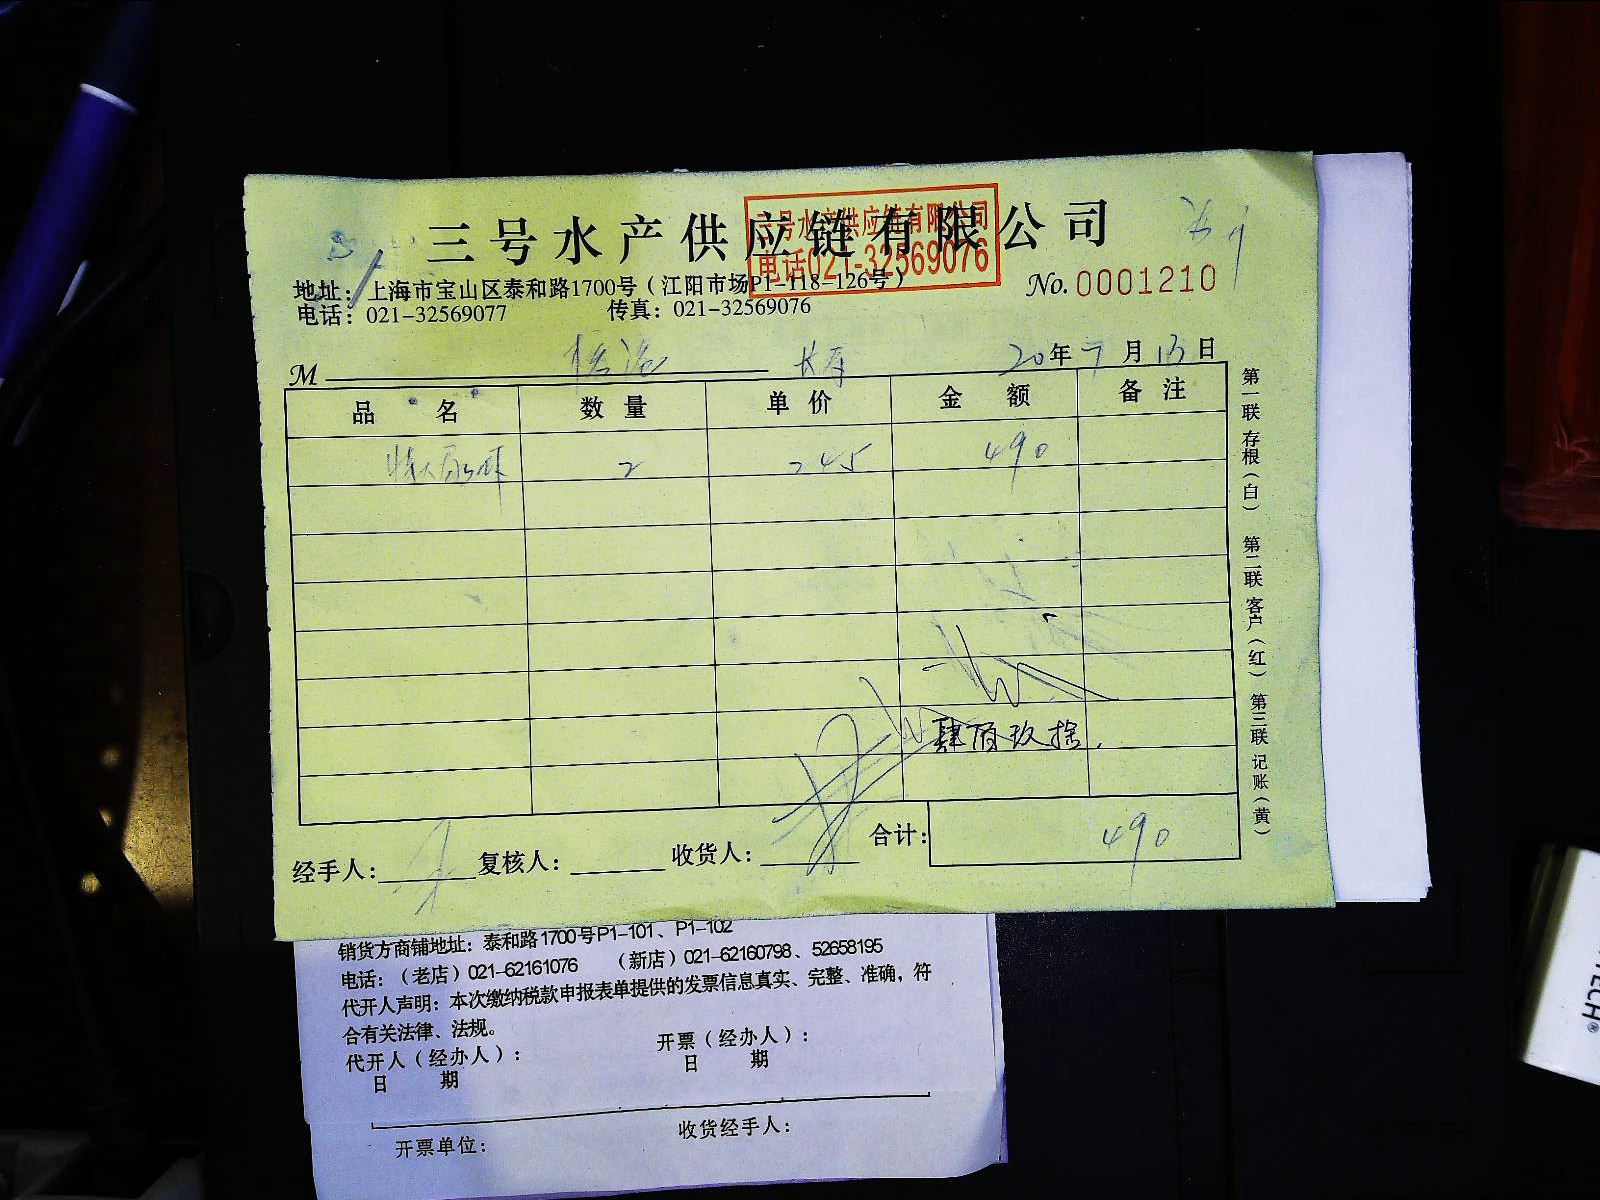 三号水产供应链有限公司
三号水产供应链有限公司
电话021-32569076
地址：上海市宝山区泰和路1700号（江阳市场P1-118-126号）
No.0001210
电话：021-32569077 传真：021-32569076
M 20年7月 日
品名 数量 单价 金额 备注
2 245 490
肆佰玖拾
合计: 490
经手人: 复核人: 收货人:
第一联 存根（白） 第二联 客户（红） 第三联 记账（黄）
销货方商铺地址：泰和路1700号P1-101、P1-102
电话：（老店）021-62161076 （新店）021-62160798、52658195
代开人声明：本次缴纳税款申报表单提供的发票信息真实、完整、准确，符
合有关法律、法规。
代开人（经办人）： 开票（经办人）：
日期 日期
开票单位： 收货经手人：
TECH